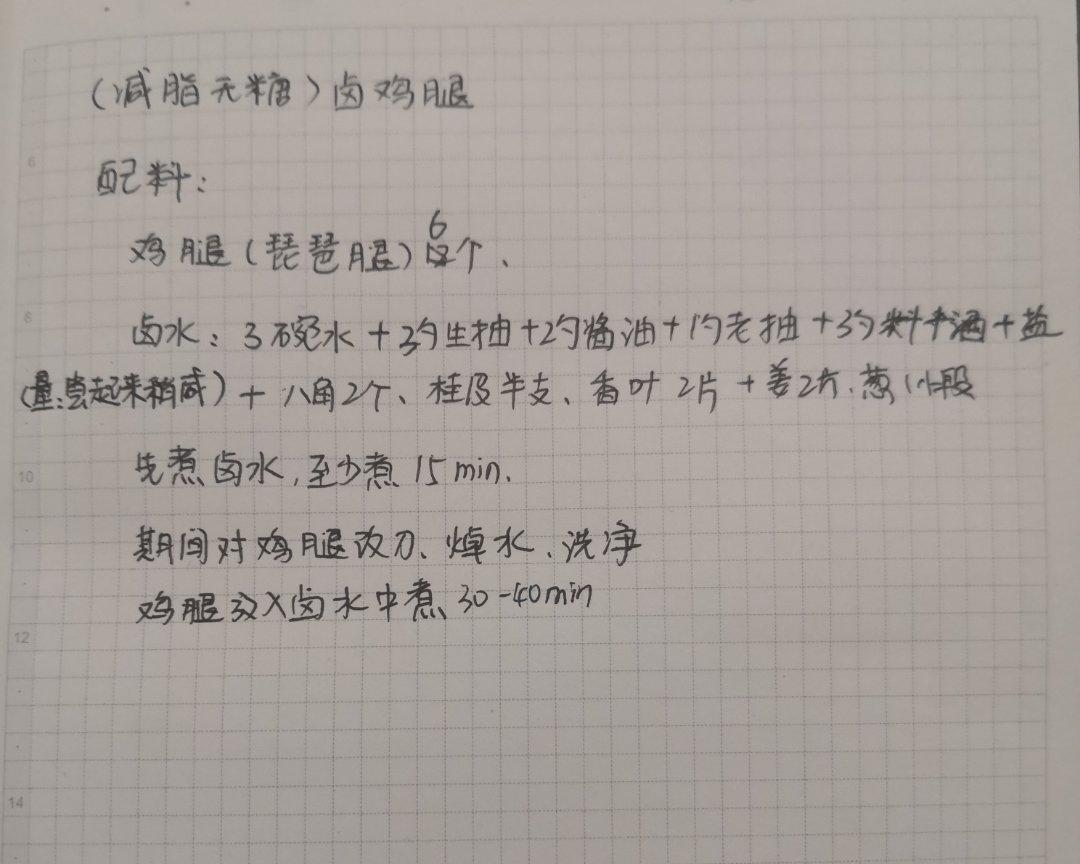 (减脂无糖)卤鸡腿
6
配料:
鸡腿(琵琶腿)6个、
8
卤水:3碗水+3勺生抽+2勺酱油+1勺老抽+3勺料酒+盐
(量:尝起来稍咸)+八角2个、桂皮半支、香叶2片+姜2片、葱1小段
10
先煮卤水,至少煮15min.
期间对鸡腿改刀、焯水、洗净
鸡腿放入卤水中煮30-40min
12
14